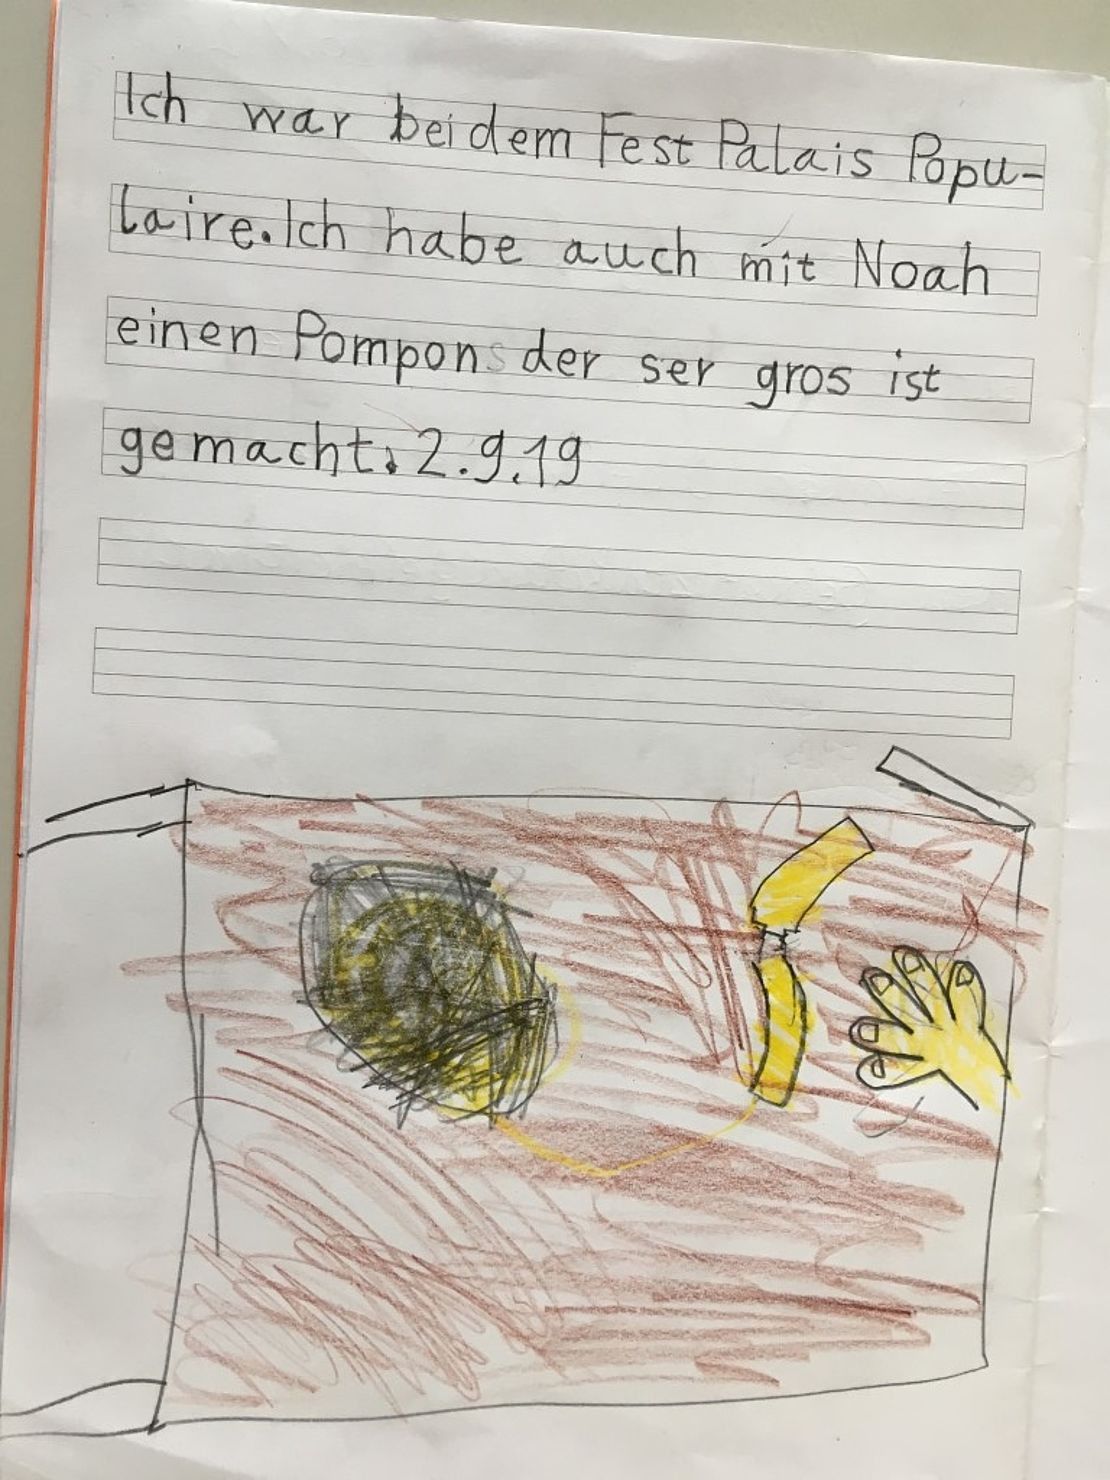 Ich war bei dem Fest Palais Popu-
laire. Ich habe auch mit Noah
einen Pompon der ser gros ist
gemacht. 2.9.19